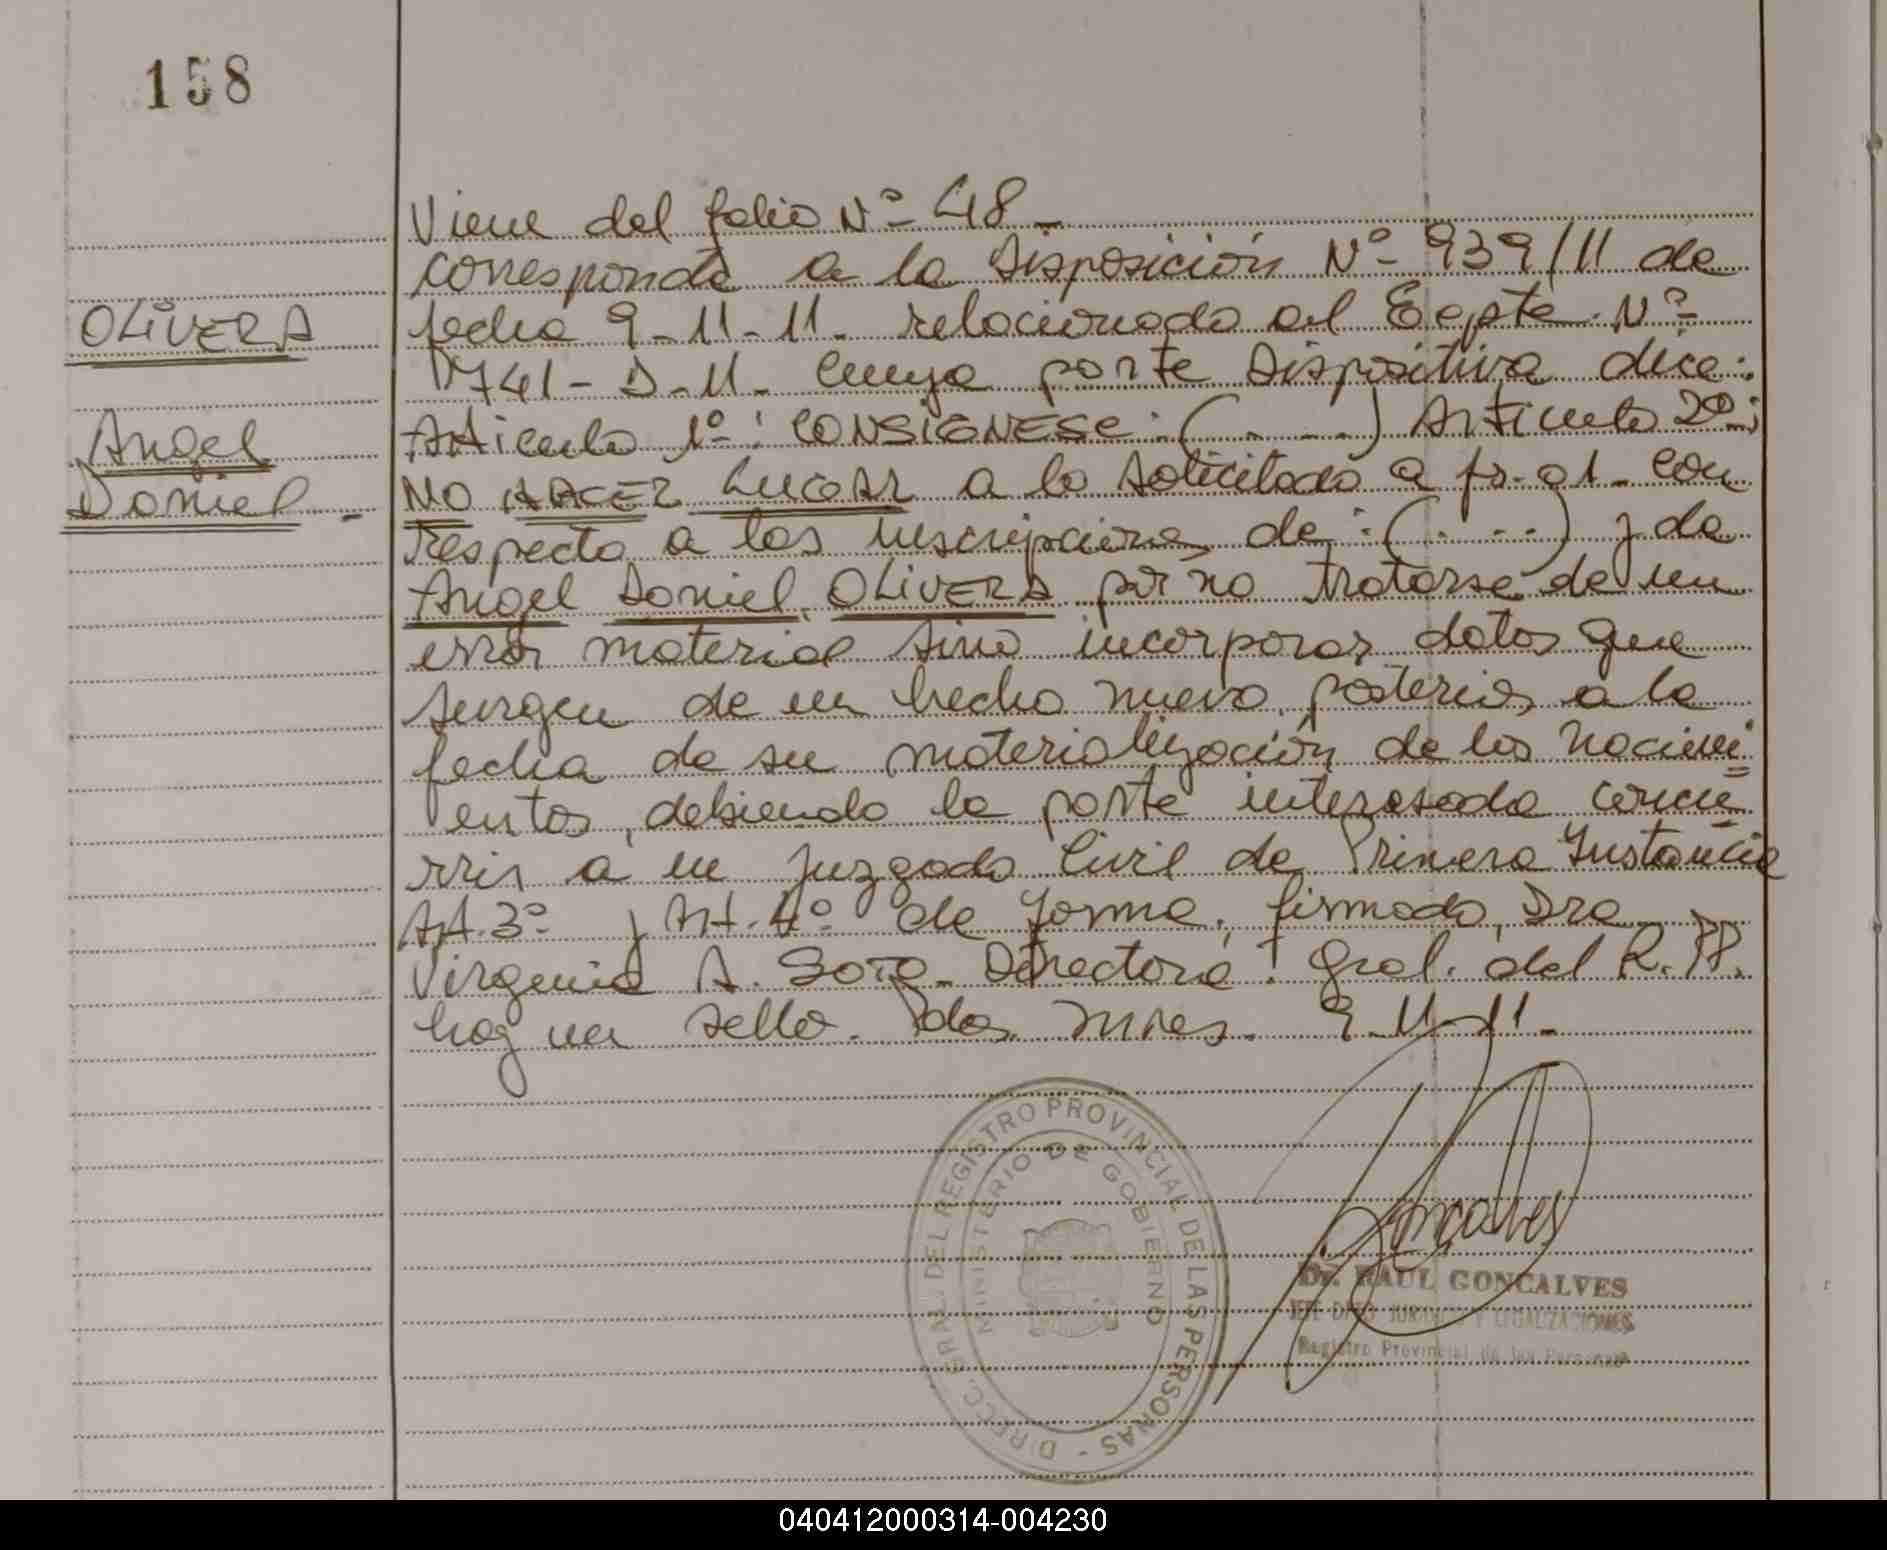 158
OLIVERA
Angel
Daniel -
Viene del folio Nº- 48 -
corresponde a la Disposición Nº- 939/11 de
fecha 9-11-11- relacionado al Eepte. Nº-
1741-D-11- Cuya parte Dispositiva dice:
Artículo 1º: CONSIGNESE: (......) Artículo 2º:
NO HACER LUGAR a lo solicitado a fs- 01- con
Respecto a las inscripciones de: (.....) y de
Angel Daniel OLIVERA por no tratarse de un
error material sino incorporar datos que
surgen de un hecho nuevo posterior a la
fecha de su materialización de los nacimi=
entos, debiendo la parte interesada concu=
rrir a un Juzgado Civil de Primera Instancia
Art. 3º y Art. 4º de forma. firmado, Dra
Virginia A. Soto- Directora Gral. del R.PP.
hay un sello. Pdas. Mnes. 9-11-11-
DIRECC. GRAL. DEL REGISTRO PROVINCIAL DE LAS PERSONAS -
MINISTERIO DE GOBIERNO
Goncalves
Dr. RAUL GONCALVES
JEFE DPTO JURIDICO Y LEGALIZACIONES
Registro Provincial de las Personas
040412000314-004230